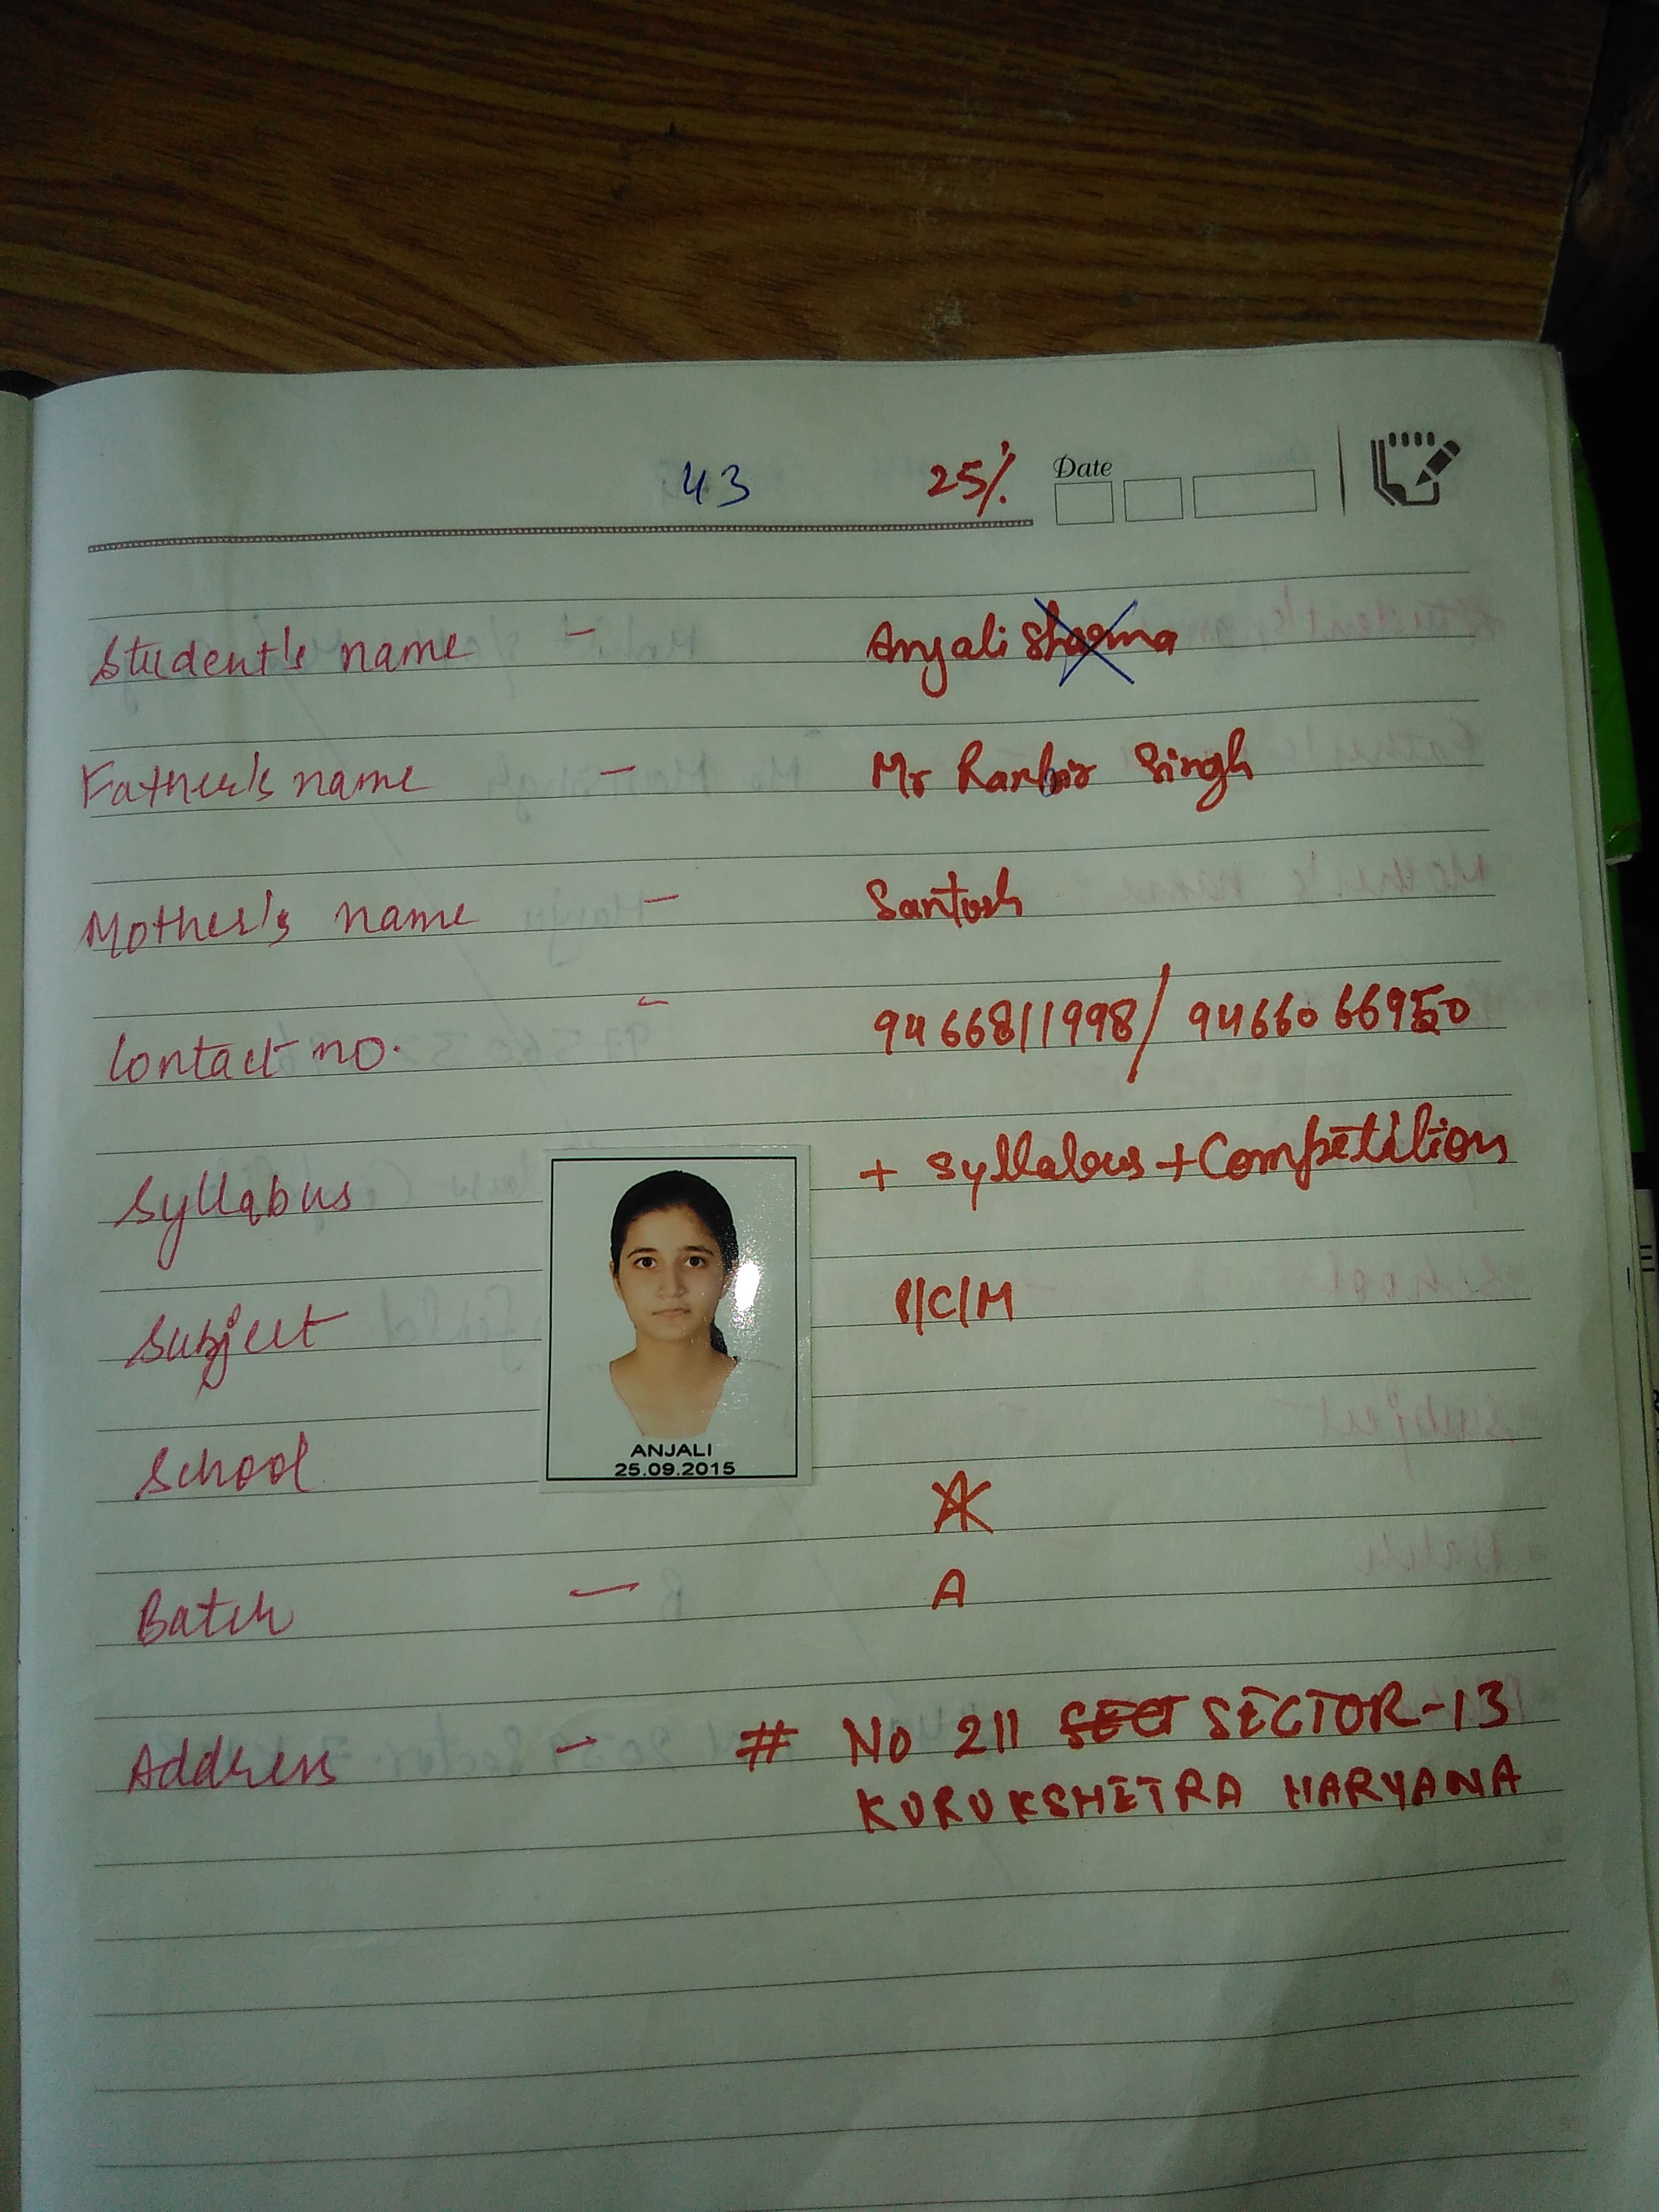 43 25% Date
Student's name - Anjali Sharma
Father's name - Mr Ranbir Singh
Mother's name - Santosh
Contact no. - 9466811998/ 9466066950
Syllabus + Syllabus + Competition
Subject P/C/M
ANJALI
25.09.2015
School A
Batch - A
Address - # No 211 SECT SECTOR-13
KURUKSHETRA HARYANA